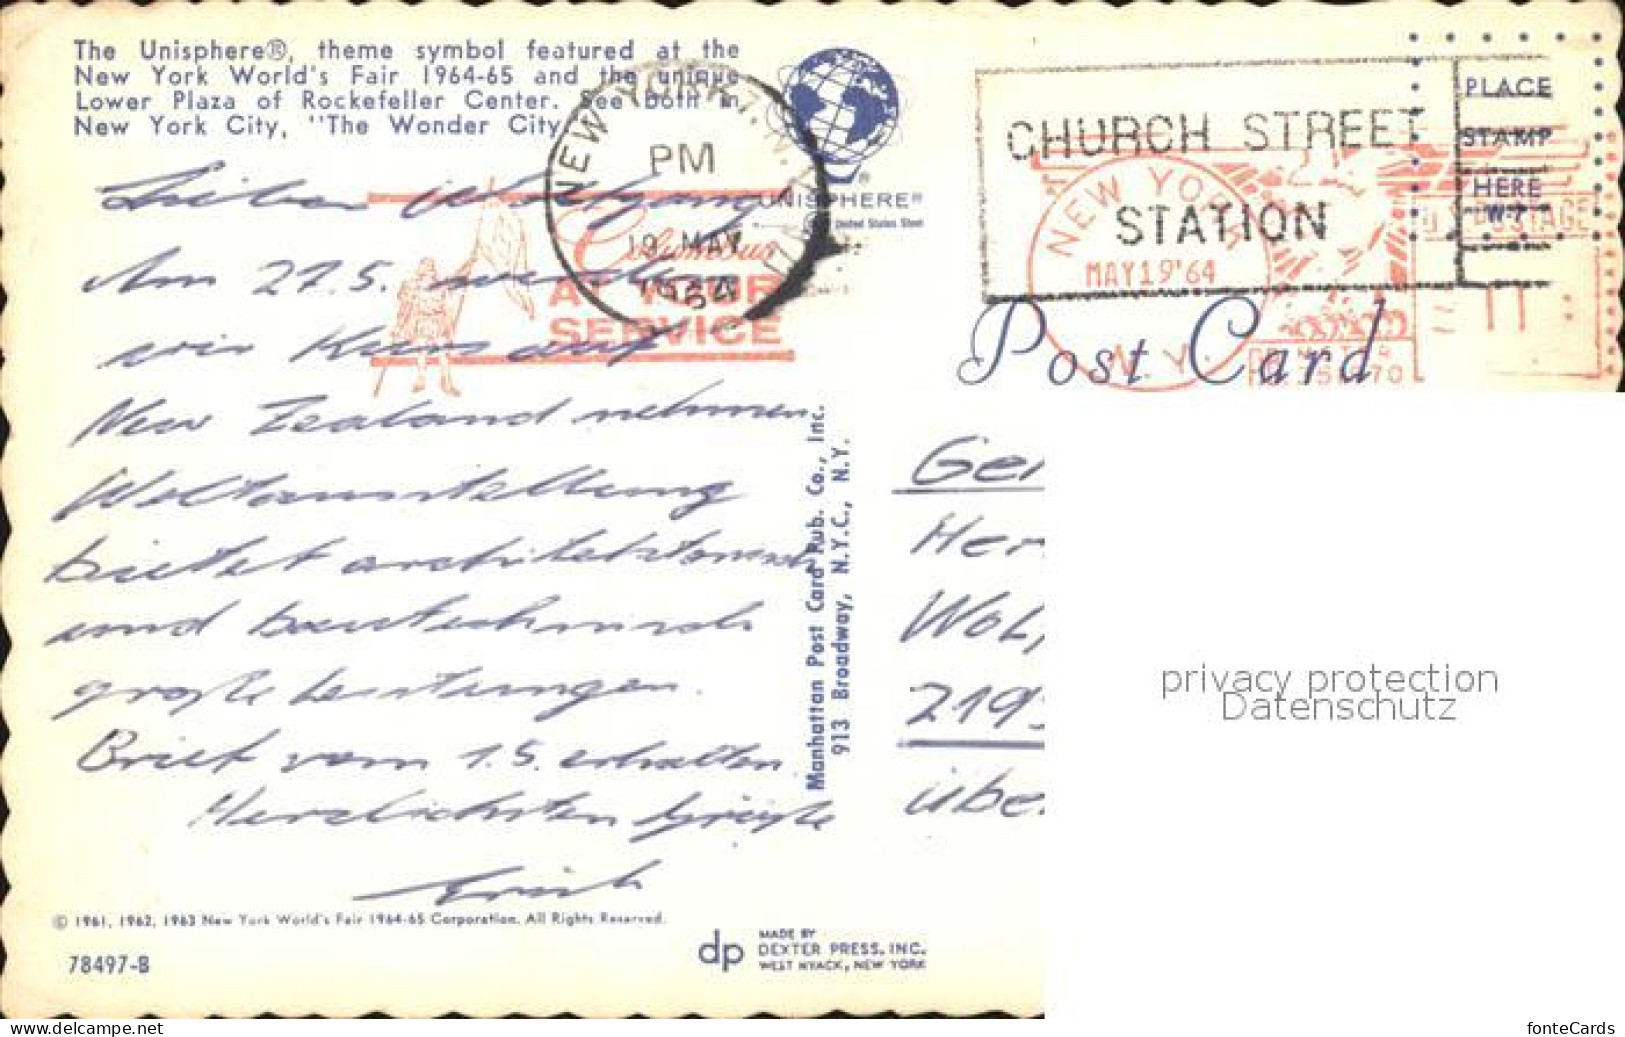 The Unisphere®, theme symbol featured at the
New York World's Fair 1964-65 and the unique
Lower Plaza of Rockefeller Center. See both in
New York City, "The Wonder City.
UNISPHERE®
United States Steel
NEW YORK, N.Y.
PM
19 MAY
1964
Columbus
AT YOUR
SERVICE
CHURCH STREET
STATION
NEW YORK
MAY 19 '64
N.Y.
U.S. POSTAGE
11
PLACE
STAMP
HERE
W-7
Post Card
Lieber Wolfgang
Am 27.5. werden
wir Kurs auf
New Zealand nehmen.
Weltausstellung
bietet architektonisch
und bautechnisch
große Leistungen.
Brief vom 1.5. erhalten.
Herzlichsten Grüße
Erich
Manhattan Post Card Pub. Co., Inc.
913 Broadway, N.Y.C., N.Y.
Ger
Her
Wol
219
übe
privacy protection
Datenschutz
© 1961, 1962, 1963 New York World's Fair 1964-65 Corporation. All Rights Reserved.
78497-B
dp
MADE BY
DEXTER PRESS, INC.
WEST NYACK, NEW YORK
www.delcampe.net
fonteCards